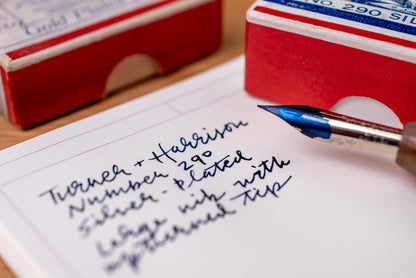 Gold Plated
NO. 290 SIL
Turner + Harrison
Number 290
silver-plated
large nib with
upturned tip